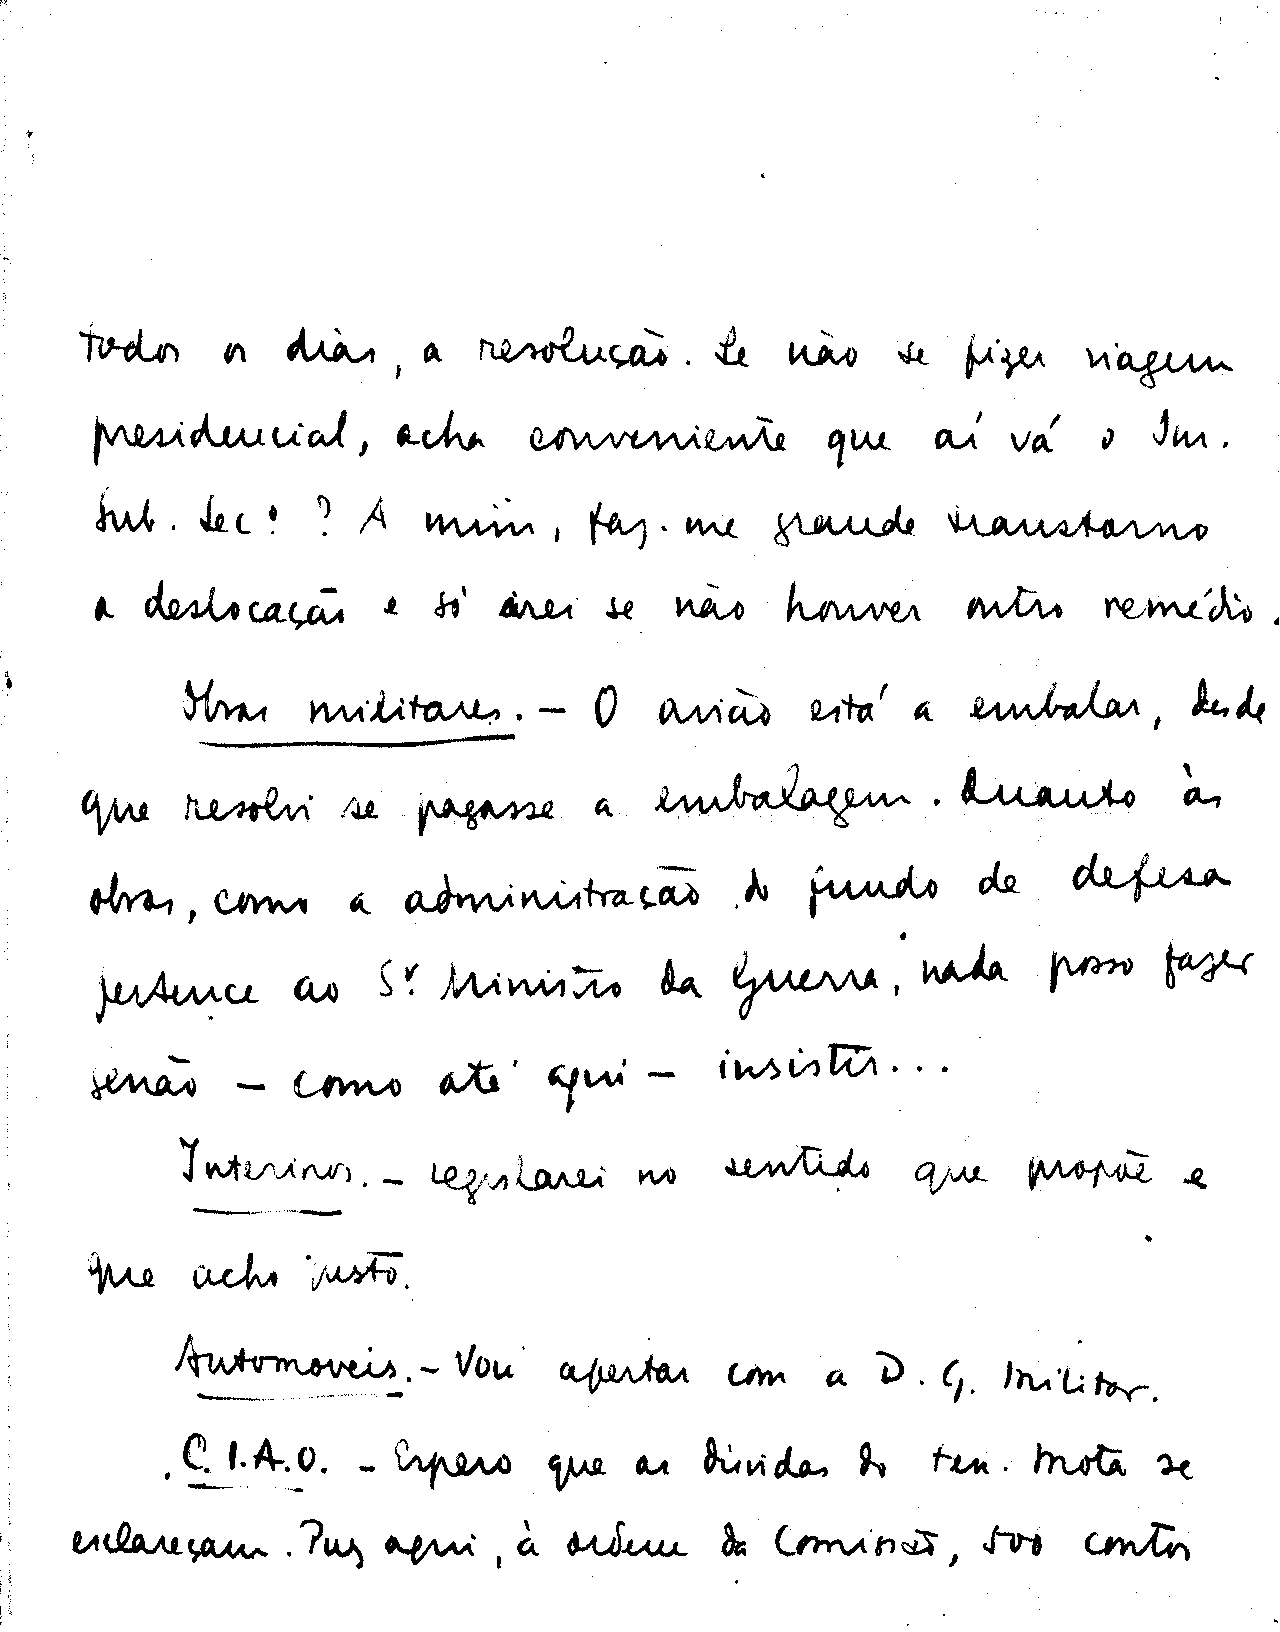 todos os dias, a resolução. Se não se fizer viagem
presidencial, acha conveniente que aí vá o
Sub. Sec.º? A mim, faz-me grande transtorno
a deslocação e só irei se não houver outro remédio.
Obras militares. - O avião está a embalar, desde
que resolvi se pagasse a embalagem. Quanto às
obras, como a administração do fundo de defesa
pertence ao Sr. Ministro da Guerra, nada posso fazer
senão - como até aqui - insistir...
Interinos. - Legislarei no sentido que propõe e
que acho justo.
Automoveis. - Vou apertar com a D. G. Militar.
C.I.A.O. - Espero que as dúvidas do ten. Mota se
esclareçam. Puz aqui, à ordem da Comissão, 500 contos